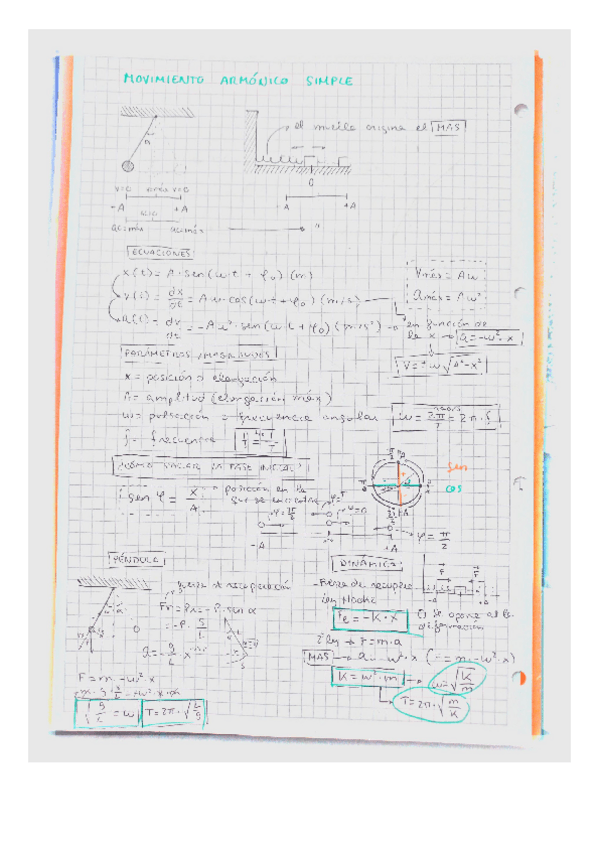 MOVIMIENTO ARMÓNICO SIMPLE
el muelle origina el MAS
v=0 vmáx v=0
-A +A
-A 0 +A
ac.máx ac.máx
ECUACIONES:
x(t) = A·sen(ω·t + φ₀) (m)
v(t) = dx/dt = A·ω·cos(ω·t + φ₀) (m/s)
a(t) = dv/dt = -A·ω²·sen(ω·t + φ₀) (m/s²) → en función de la x → a = -ω²·x
Vmáx = Aω
amáx = Aω²
V = ±ω√A²-x²
PARÁMETROS/MAGNITUDES
x = posición o elongación
A = amplitud (elongación máx)
ω = pulsación o frecuencia angular ω = 2π/T = 2π·f
f = frecuencia
¿CÓMO SACAR LA FASE INICIAL?
sen φ = x/A posición en la que se encuentra
sen
cos
φ=π
φ=0
φ = π/2
-A +A
PÉNDULO
fuerza de recuperación
F = m·-ω²·x
√g/L = ω T = 2π·√L/g
DINÁMICA:
Fuerza de recupera
ción Hooke
Fe = -K·x
se opone a la deformación
2ª Ley → F = m·a
MAS → a = -ω²·x
K = ω²·m → ω = √K/m
T = 2π·√m/K